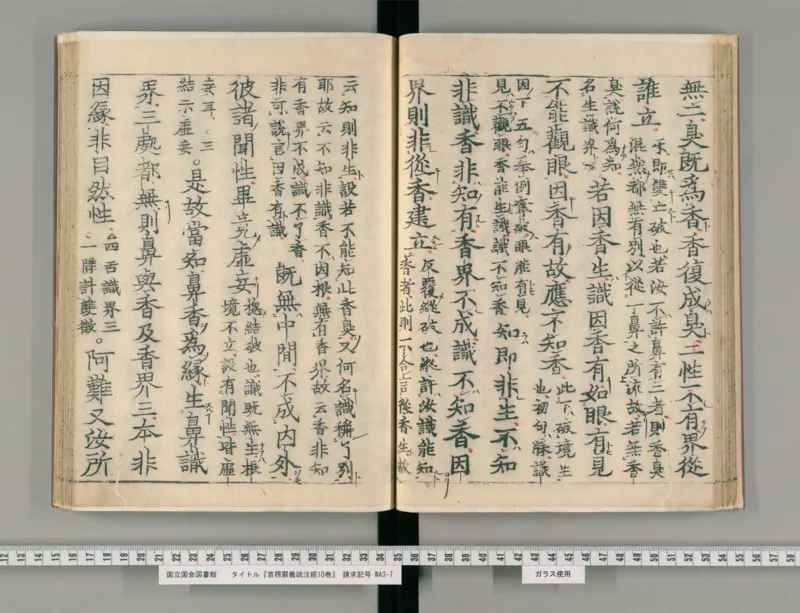 無二臭既為香香復成臭二性不有界從
誰立
示即雙亡破也若汝不許鼻有三者則香臭
混然都無有別以從一鼻之所流故若無香
臭說何為知
名生識界
若因香生識因香有如眼有見
不能觀眼因香有故應不知香
此下破境生
也初句牒識
因下五句舉例齊破眼能有見
見不觀眼香能生識識不知香
知即非生不知
非識香非知有香界不成識不知香因
界則非從香建立
反覆縱破也縱許汝識能知
香者此則一下合言從香生故
云知則非生設若不能知此香臭又何名識稱了別
耶故云不知非識香不因根無有香界故云香非知
有香界不成識不了香
非可說言因香有識
既無中間不成內外
彼諸聞性畢竟虛妄
揔結破也識既無生根
境不立設有聞性皆虛
妄耳三
結示虛妄
是故當知鼻香為緣生鼻識
界三處都無則鼻與香及香界三本非
因緣非自然性
四舌識界三
一牒計雙徵
阿難又汝所
国立国会図書館 タイトル『首楞嚴義疏注經10巻』 請求記号 WA3-7
ガラス使用